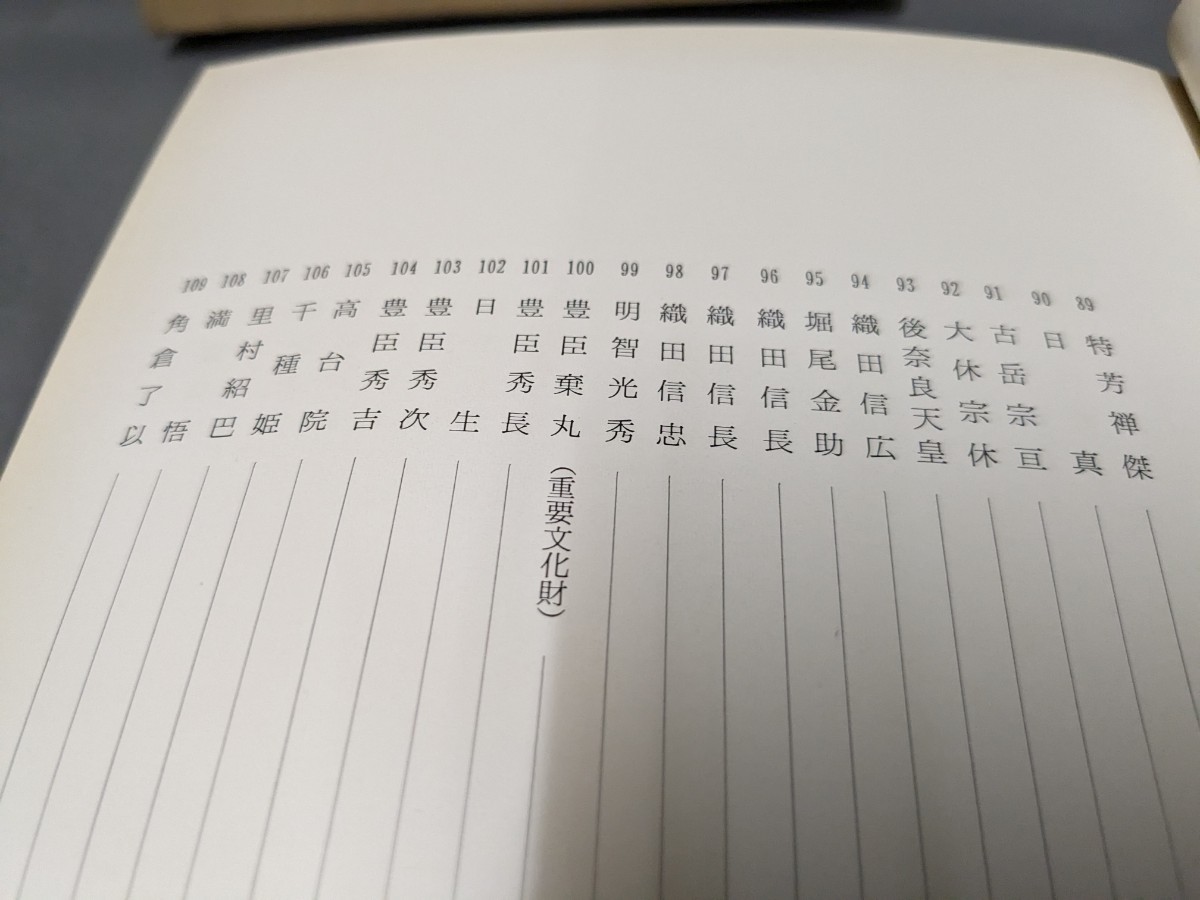 89 特芳禅傑
90 日真
91 古岳宗亘
92 大休宗休
93 後奈良天皇
94 織田信広
95 堀尾金助
96 織田信長
97 織田信長
98 織田信忠
99 明智光秀
100 豊臣棄丸(重要文化財)
101 豊臣秀長
102 日生
103 豊臣秀次
104 豊臣秀吉
105 高台院
106 千種姫
107 里村紹巴
108 満悟
109 角倉了以